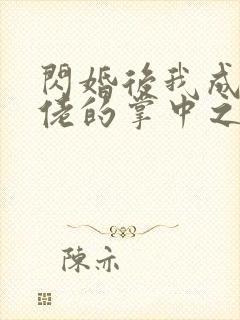 閃婚後我成
佬的掌中之
陳亦